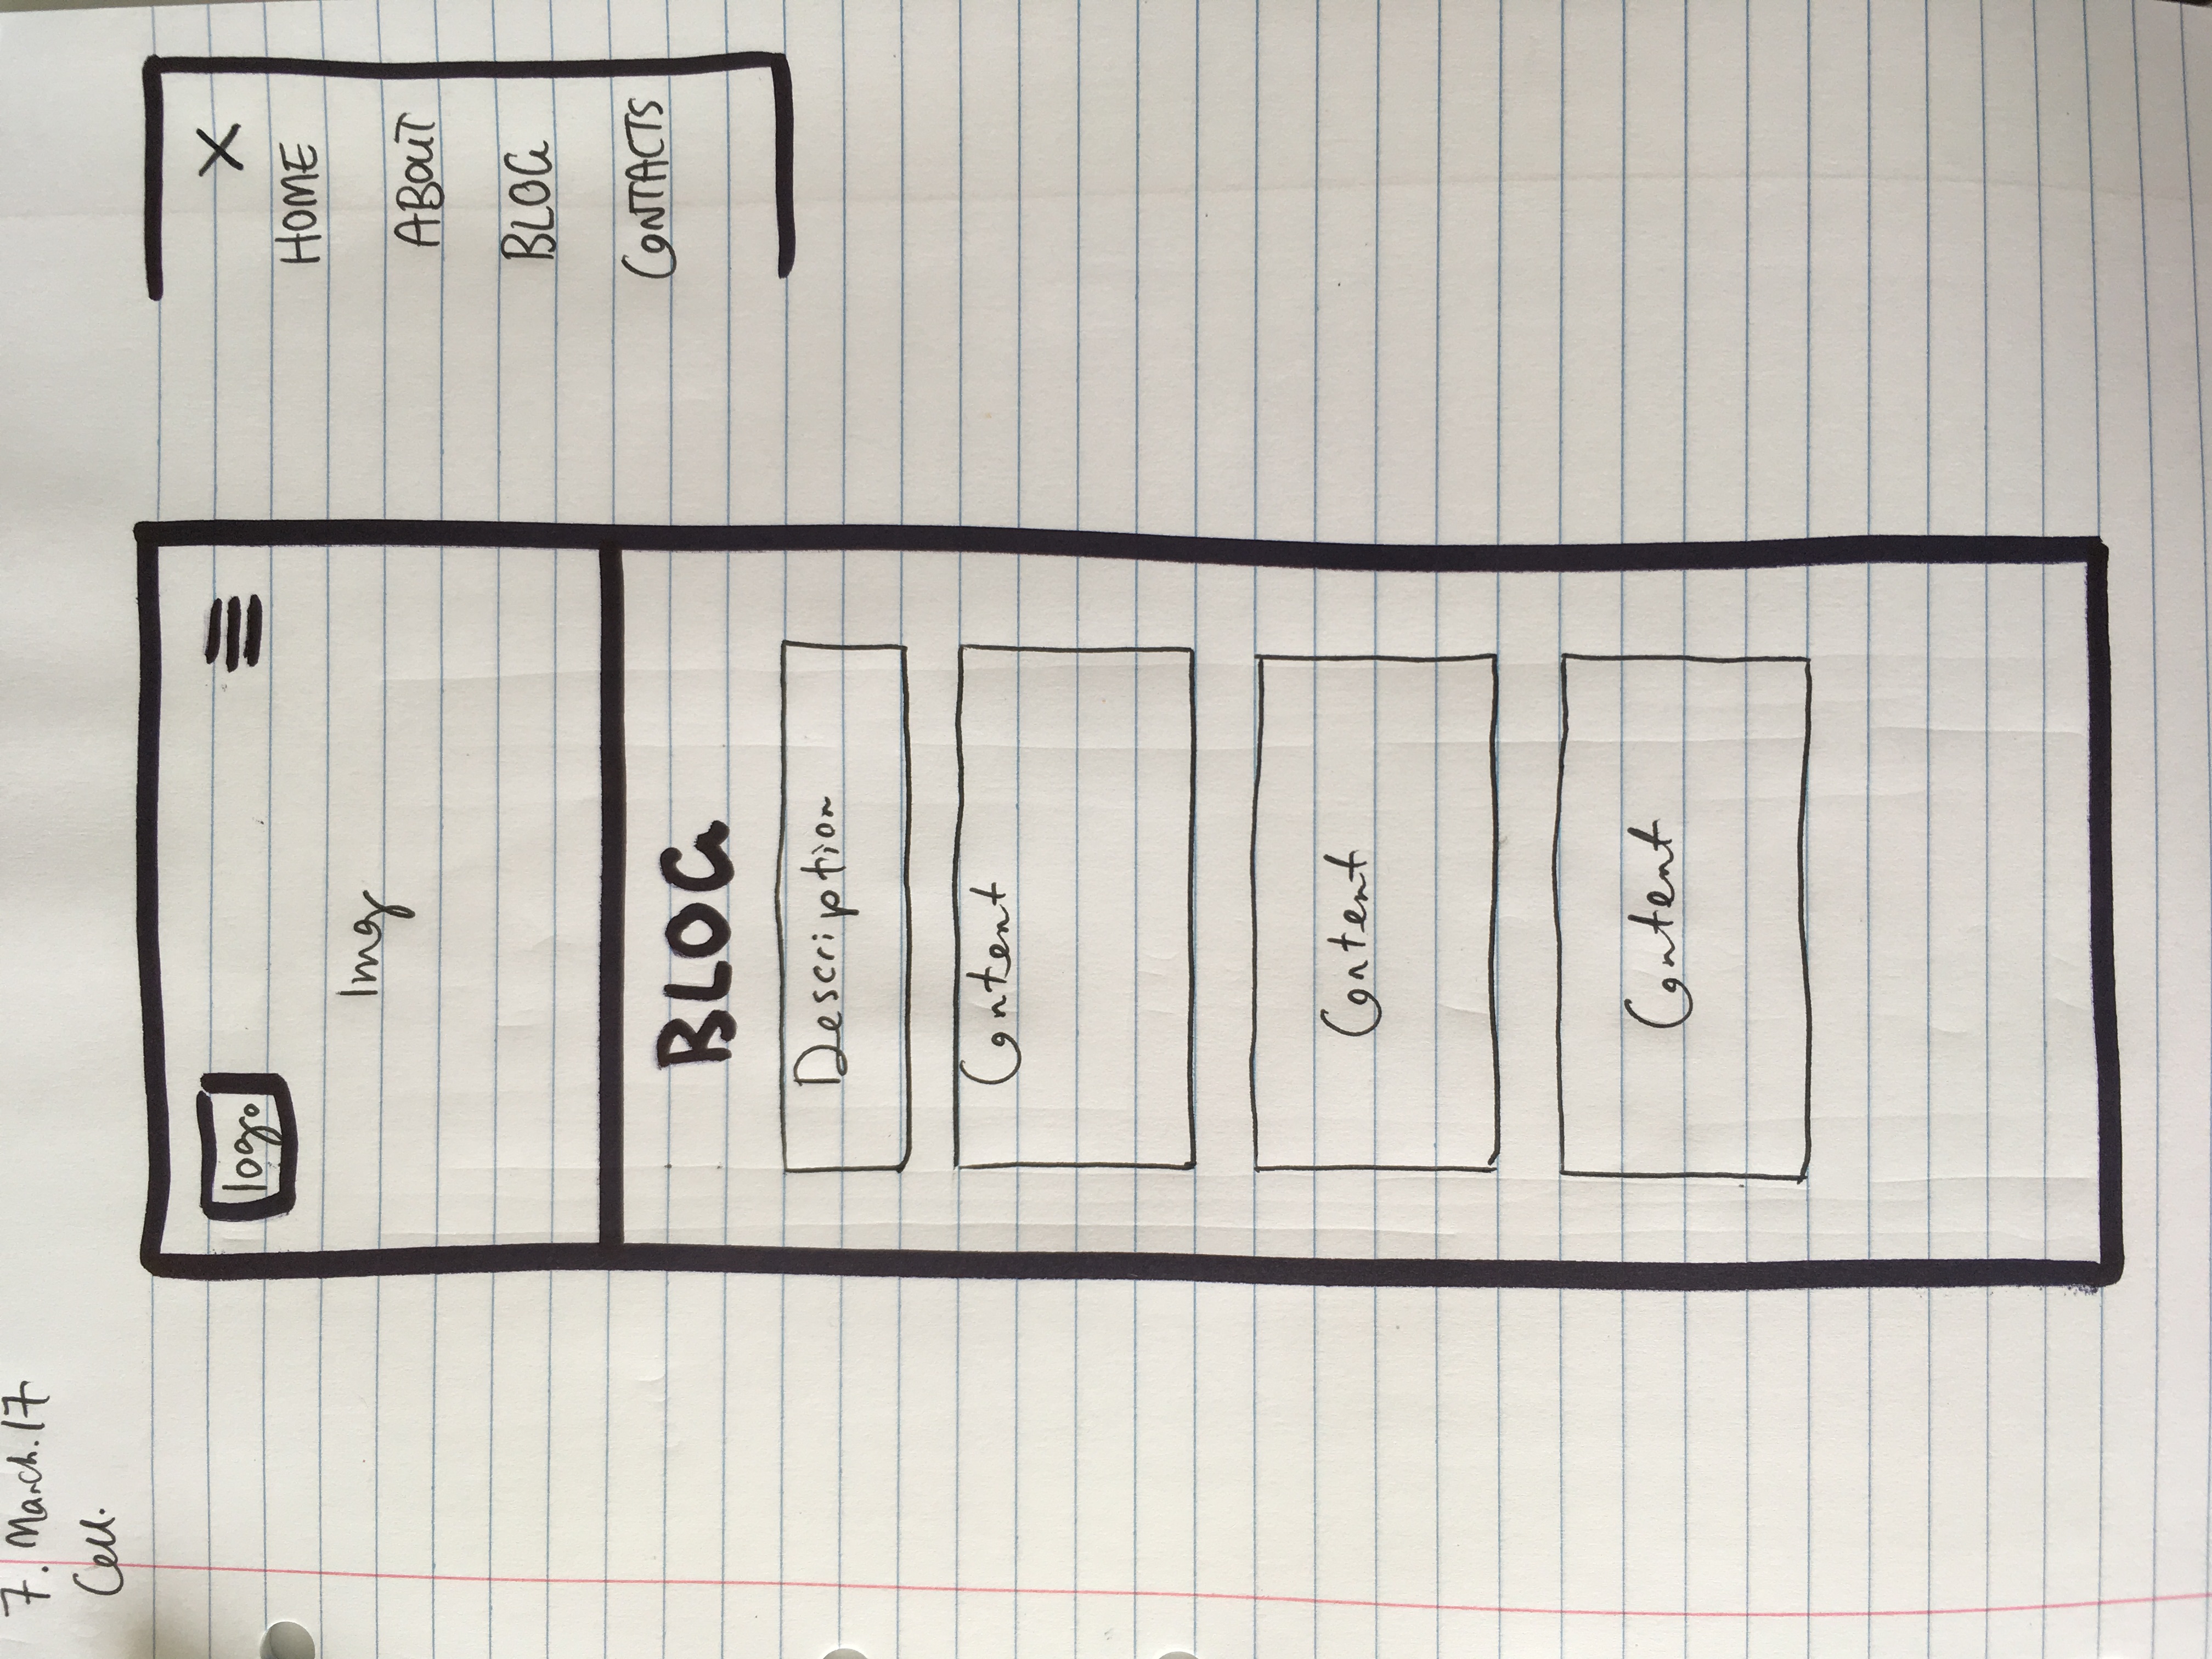 7. March. 17
Cell.
logo
Img
BLOG
Description
Content
Content
Content
X
HOME
ABOUT
BLOG
CONTACTS